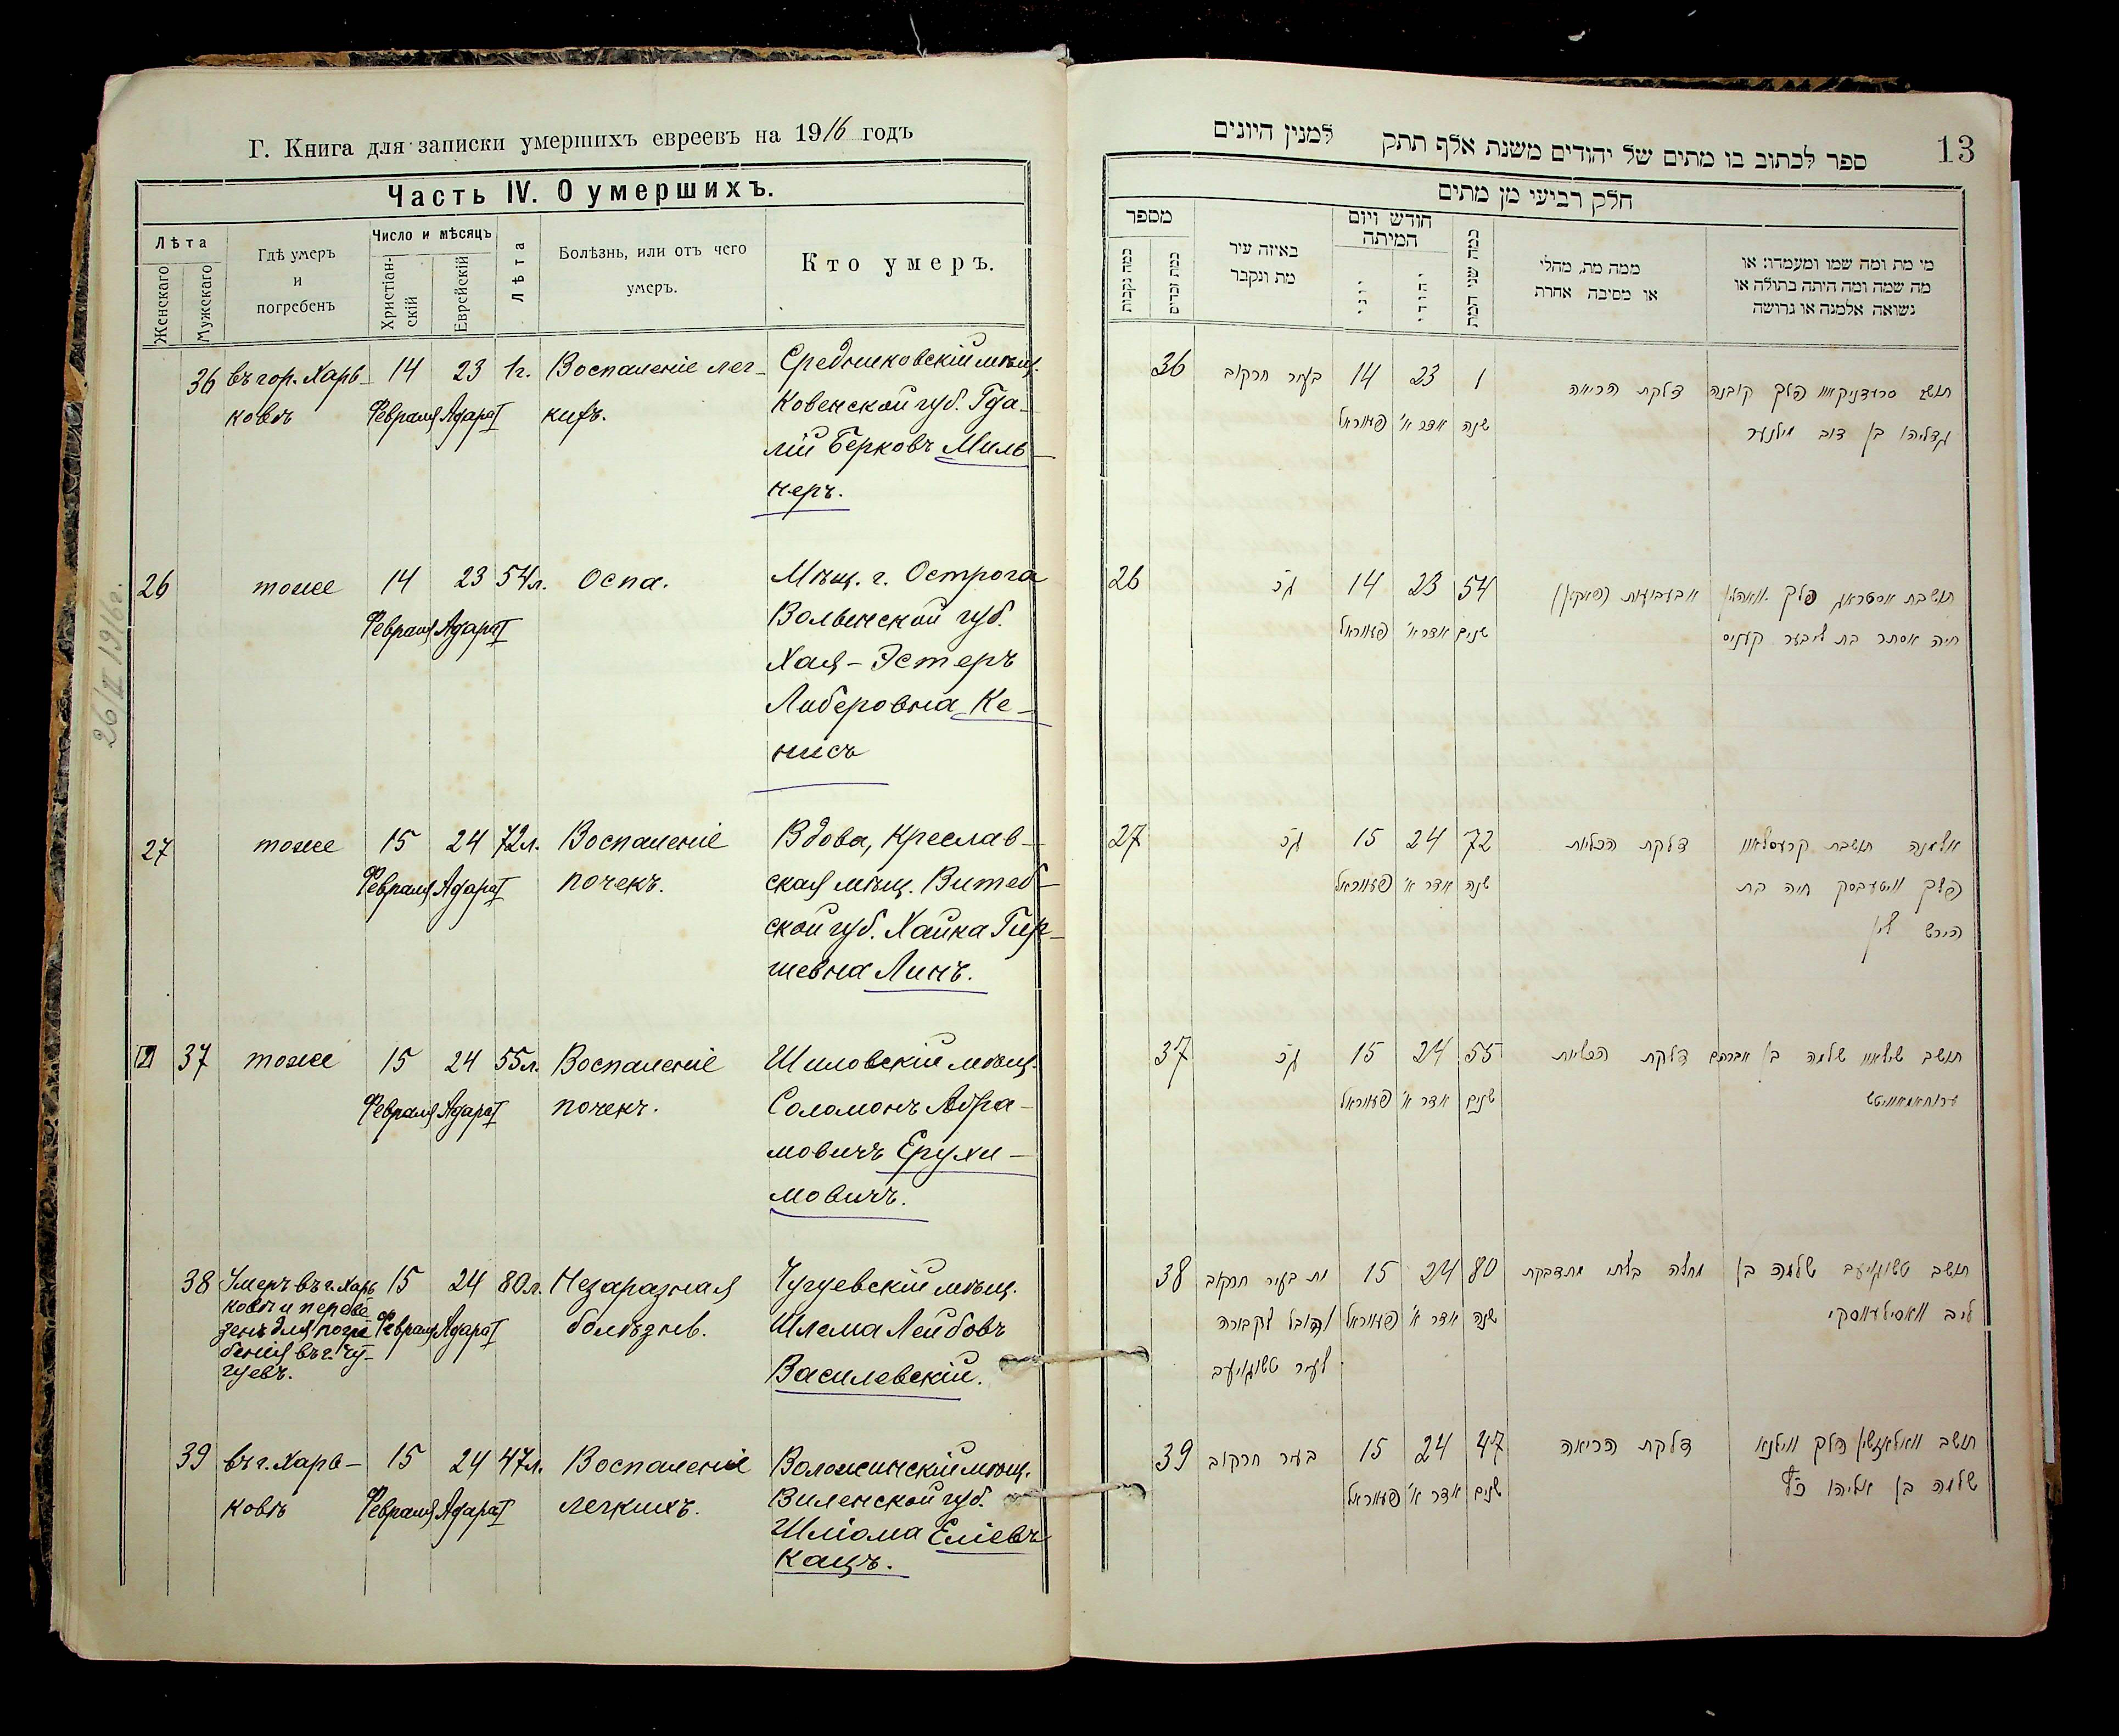 Г. Книга для записки умершихъ евреевъ на 1916 годъ
Часть IV. О умершихъ.
Лѣта
Женскаго
Мужскаго
Гдѣ умеръ
и
погребенъ
Число и мѣсяцъ
Христіан-
скій
Еврейскій
Лѣта
Болѣзнь, или отъ чего
умеръ.
Кто умеръ.
36 въ гор. Харь- 14 23 1г. Воспаленіе лег- Средниковскій мѣщ.
ковѣ Февраля Адара I кихъ. Ковенской губ. Гда-
лій Берковъ Миль-
неръ.
26 тоже 14 23 54л. Оспа. Мѣщ. г. Острога
Февраля Адара I Волынской губ.
Хая-Эстеръ
Либеровна Ке-
нисъ
27 тоже 15 24 72л. Воспаленіе Вдова, Креслав-
Февраля Адара I почекъ. ская мѣщ. Витеб-
ской губ. Хайка Гир-
шевна Линъ.
37 тоже 15 24 55л. Воспаленіе Шиловскій мѣщ.
Февраля Адара I почекъ. Соломонъ Абра-
мовичъ Ерухи-
мовичъ.
38 Умеръ въ г. Харь 15 24 80л. Незаразная Чугуевскій мѣщ.
ковѣ и переве
зенъ для погре Февраля Адара I болѣзнь. Шлема Лейбовъ
бенія въ г. Чу-
гуевъ. Василевскій.
39 въ г. Харь- 15 24 47л. Воспаленіе Воложинскій мѣщ.
ковѣ Февраля Адара I легкихъ. Виленской губ.
Шліома Еліевъ
Кацъ.
26/II 1916г.
13
ספר לכתוב בו מתים של יהודים משנת אלף תתק למנין היונים
חלק רביעי מן מתים
מספר
כמה נקבות
כמה זכרים
באיזה עיר
מת ונקבר
חודש ויום
המיתה
יוני
יהודי
כמה שני המת
ממה מת, מחלי
או מסיבה אחרת
מי מת ומה שמו ומעמדו: או
מה שמה ומה היתה בתולה או
נשואה אלמנה או גרושה
36 בעיר חרקוב 14 23 1 דלקת הריאה תושב סרעדניקאוו פלך קובנה
פעווראל אדר א' שנה גדליהו בן דוב מילנער
26 גכ 14 23 54 אבעבועות תושבת אסטראג פלך
פעווראל אדר א' שנים חיה אסתר בת ליבער קעניס
27 גכ 15 24 72 דלקת הכליות אלמנה תושבת קרעסלאוו
פעווראל אדר א' שנה פלך וויטעבסק חיה בת
הירש לין
37 גכ 15 24 55 דלקת הכליות תושב שילאוו שלמה בן אברהם
פעווראל אדר א' שנים
38 מת בעיר חרקוב 15 24 80 מחלה בלתי מתדבקת תושב טשוגויעב שלמה בן
והובל לקבורה פעווראל אדר א' שנה ליב וואסילעווסקי
לעיר טשוגויעב
39 בעיר חרקוב 15 24 47 דלקת הריאה תושב וואלאזשין פלך ווילנא
פעווראל אדר א' שנים שלמה בן אליהו כץ